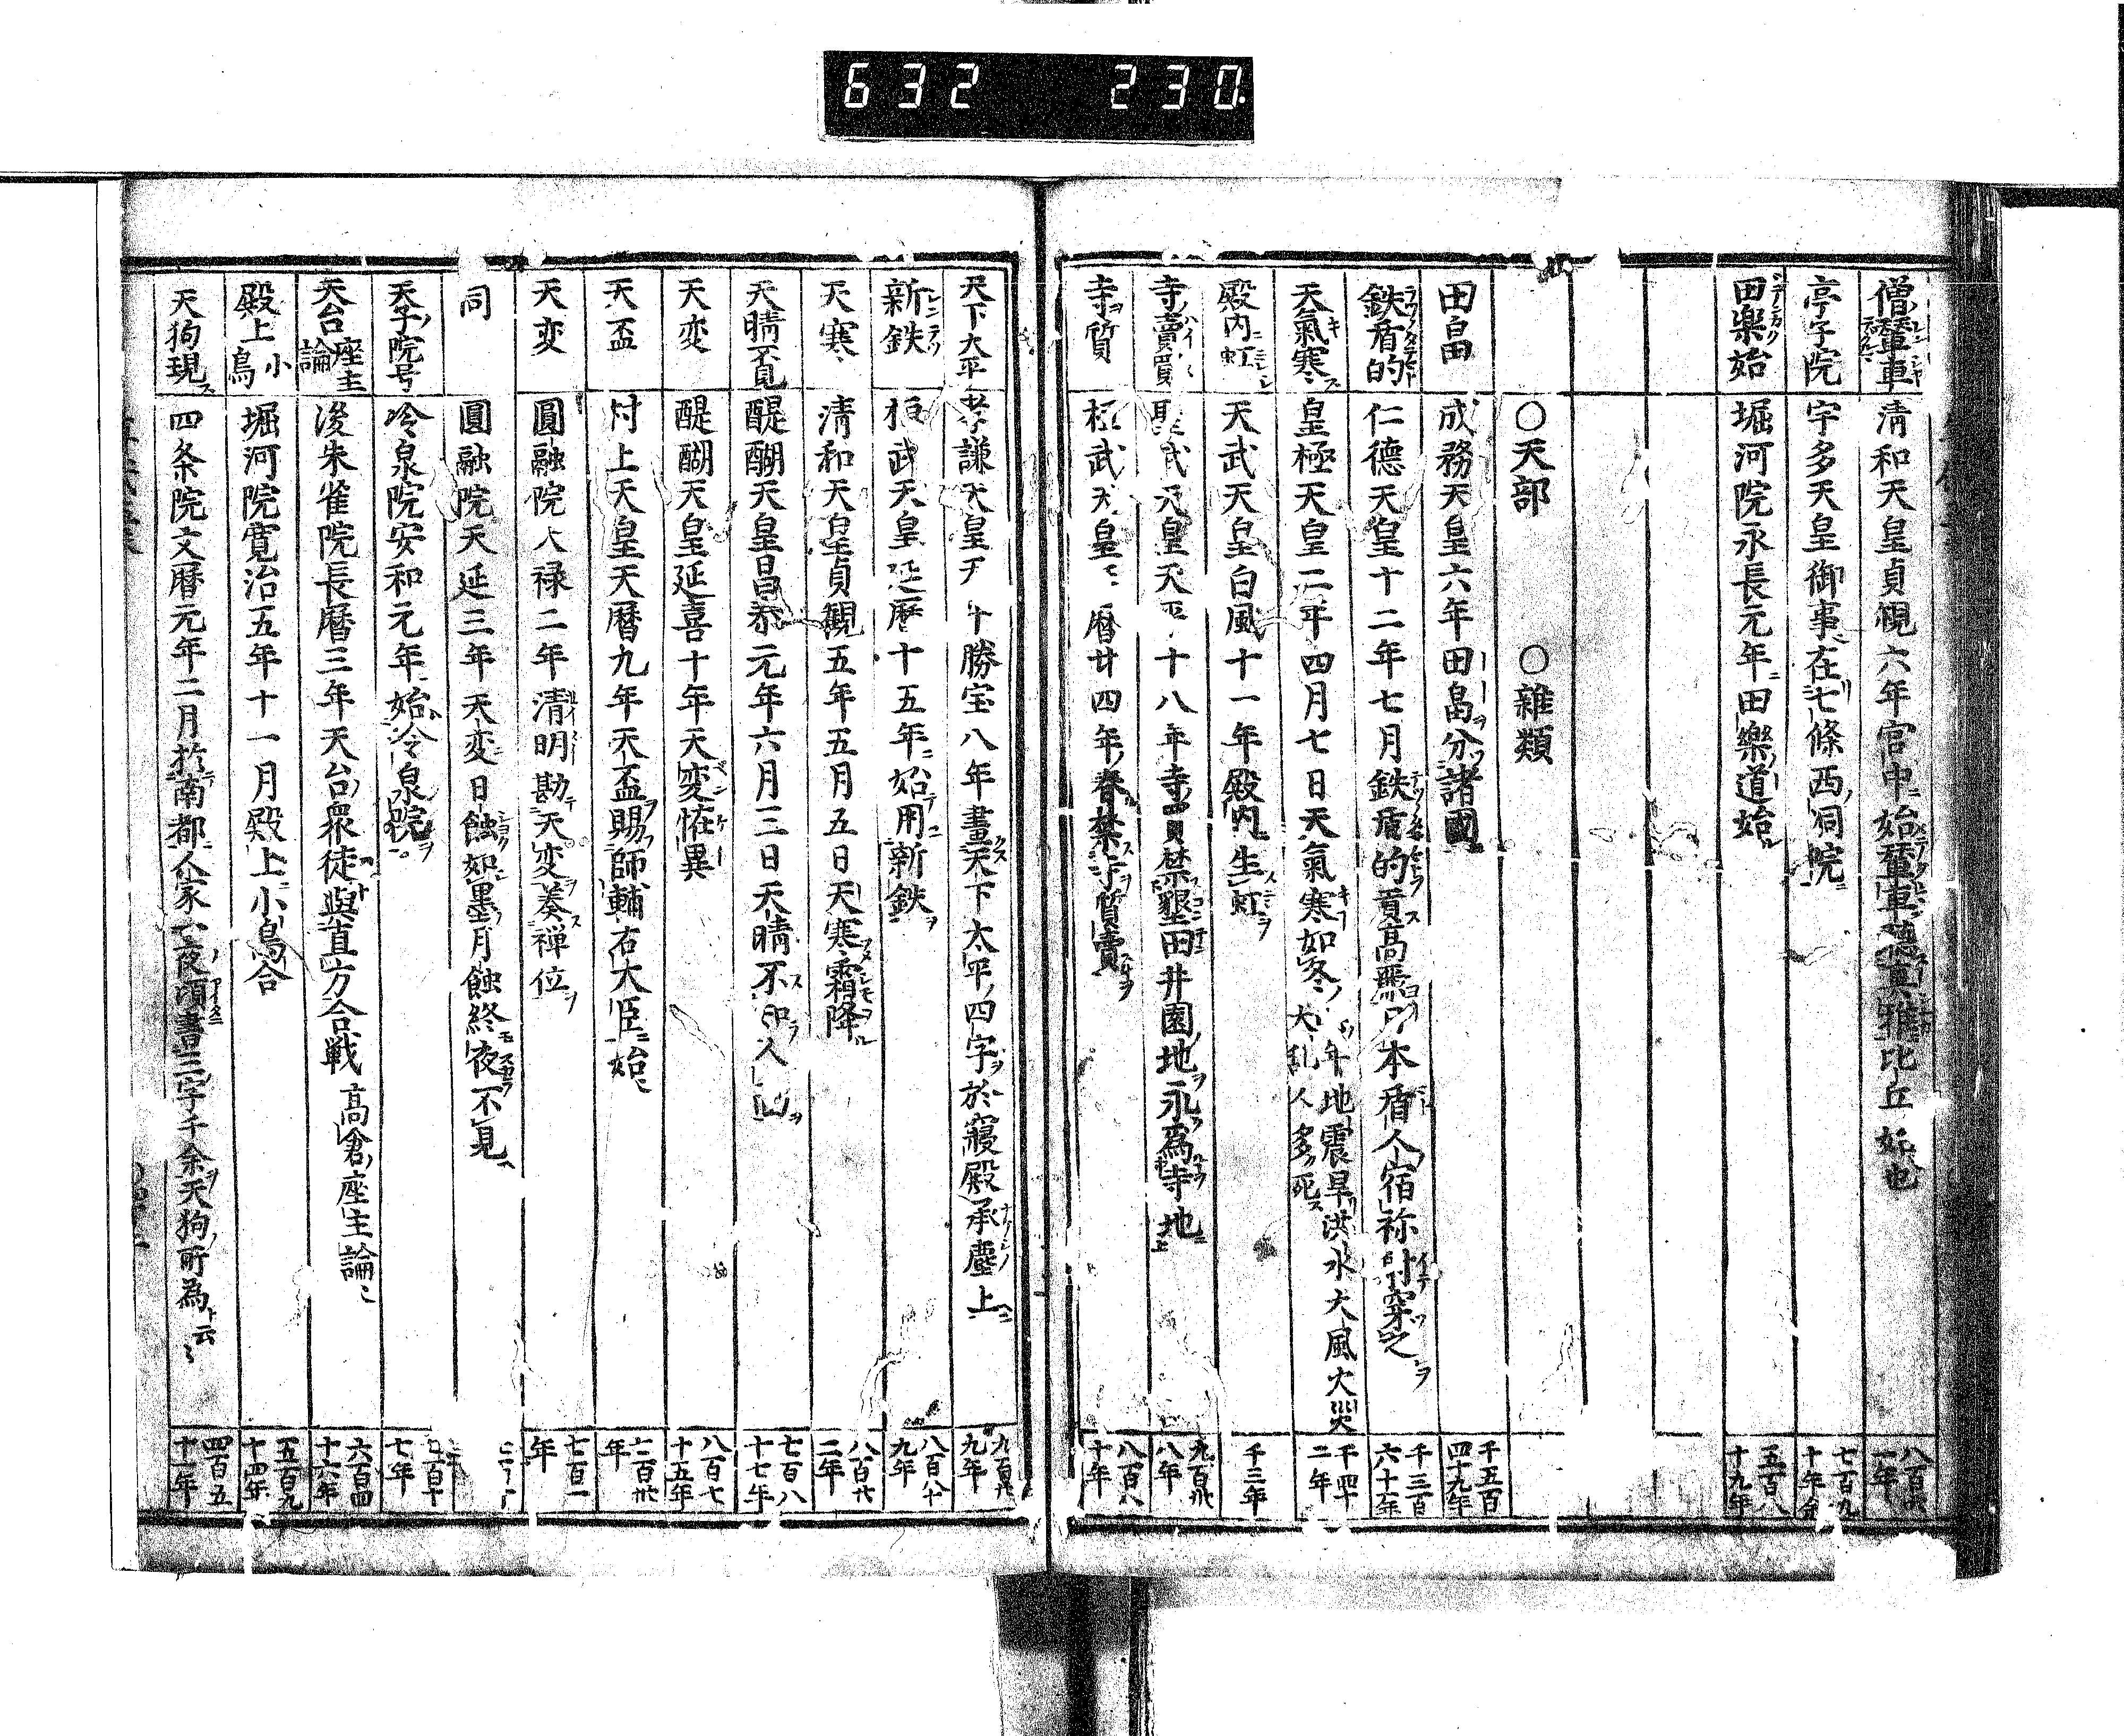 632 230
僧輦車 清和天皇貞観六年宮中始輦車 比丘始也 八百六 一年
亭子院 宇多天皇御事在七條西洞院 七百九十年余
田楽始 堀河院永長元年田樂道始 五百八十九年
○天部 ○雑類
田畠 成務天皇六年田畠分諸國 千五百四十九年
鉄盾的 仁德天皇十二年七月鉄盾的貢高麗日本盾人宿祢射穿之 千三百六十年
天氣寒 皇極天皇二年四月七日天氣寒如冬 年地震旱洪水大風火災 大乱人多死 千四十二年
殿内虹 天武天皇白鳳十一年殿内生虹 千三年
寺賣買 聖武天皇天平十八年寺買禁墾田并園地永為寺地 九百卅八年
寺質 桓武天皇 暦廿四年春禁寺質賣 八百八十年
天下太平 孝謙天皇天平勝宝八年畫天下太平四字於寢殿承塵上 九百廿九年
新鉄 桓武天皇延暦十五年始用新鉄 八百八十九年
天寒 清和天皇貞観五年五月五日天寒霜降 八百廿二年
天晴不見 醍醐天皇昌泰元年六月三日天晴不 人 七百八十七年
天変 醍醐天皇延喜十年天変恠異 八百七十五年
天盃 村上天皇天暦九年天盃賜師輔右大臣始 七百卅年
天変 圓融院天禄二年清明勘天変奏禅位 七百一年
同 圓融院天延三年天変日蝕如墨月蝕終夜不見
天子院号 冷泉院安和元年始冷泉院 七百十七年
天台座主論 後朱雀院長暦三年天台衆徒與直方合戦 高倉座主論 六百四十六年
殿上小鳥 堀河院寛治五年十一月殿上小鳥合 五百九十四年
天狗現 四条院文暦元年二月於南都人家一夜頃書三字千余天狗所為云々 四百五十一年